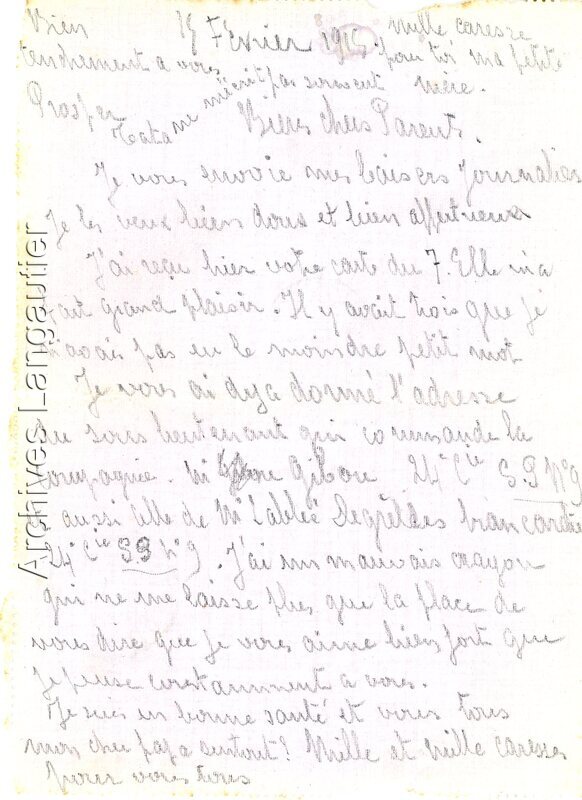 15 Février 1915
Bien
tendrement à vous
Prosper
mille caresse
pour toi ma petite
mère.
Tata ne m'écrit pas souvent
Biens chers Parents.
Je vous envoie mes baisers journalies
Je les veux bien doux et bien affectueux
J'ai reçu hier votre carte du 7. Elle m'a
fait grand plaisir. Il y avait trois que je
n'avais pas eu le moindre petit mot
Je vous ai deja donné l'adresse
du sous lieutenant qui commande la
compagnie. Mr Gibou 24e Cie S.P No 9
aussi celle de Mr l'abbé brancardie
24e Cie S9 No 9. J'ai un mauvais crayon
qui ne me laisse plus que la place de
vous dire que je vous aime bien fort que
je pense constamment a vous.
Je suis en bonne santé et vous tous
mon cher papa surtout? Mille et mille caresses
pour vous tous
Archives Langautier